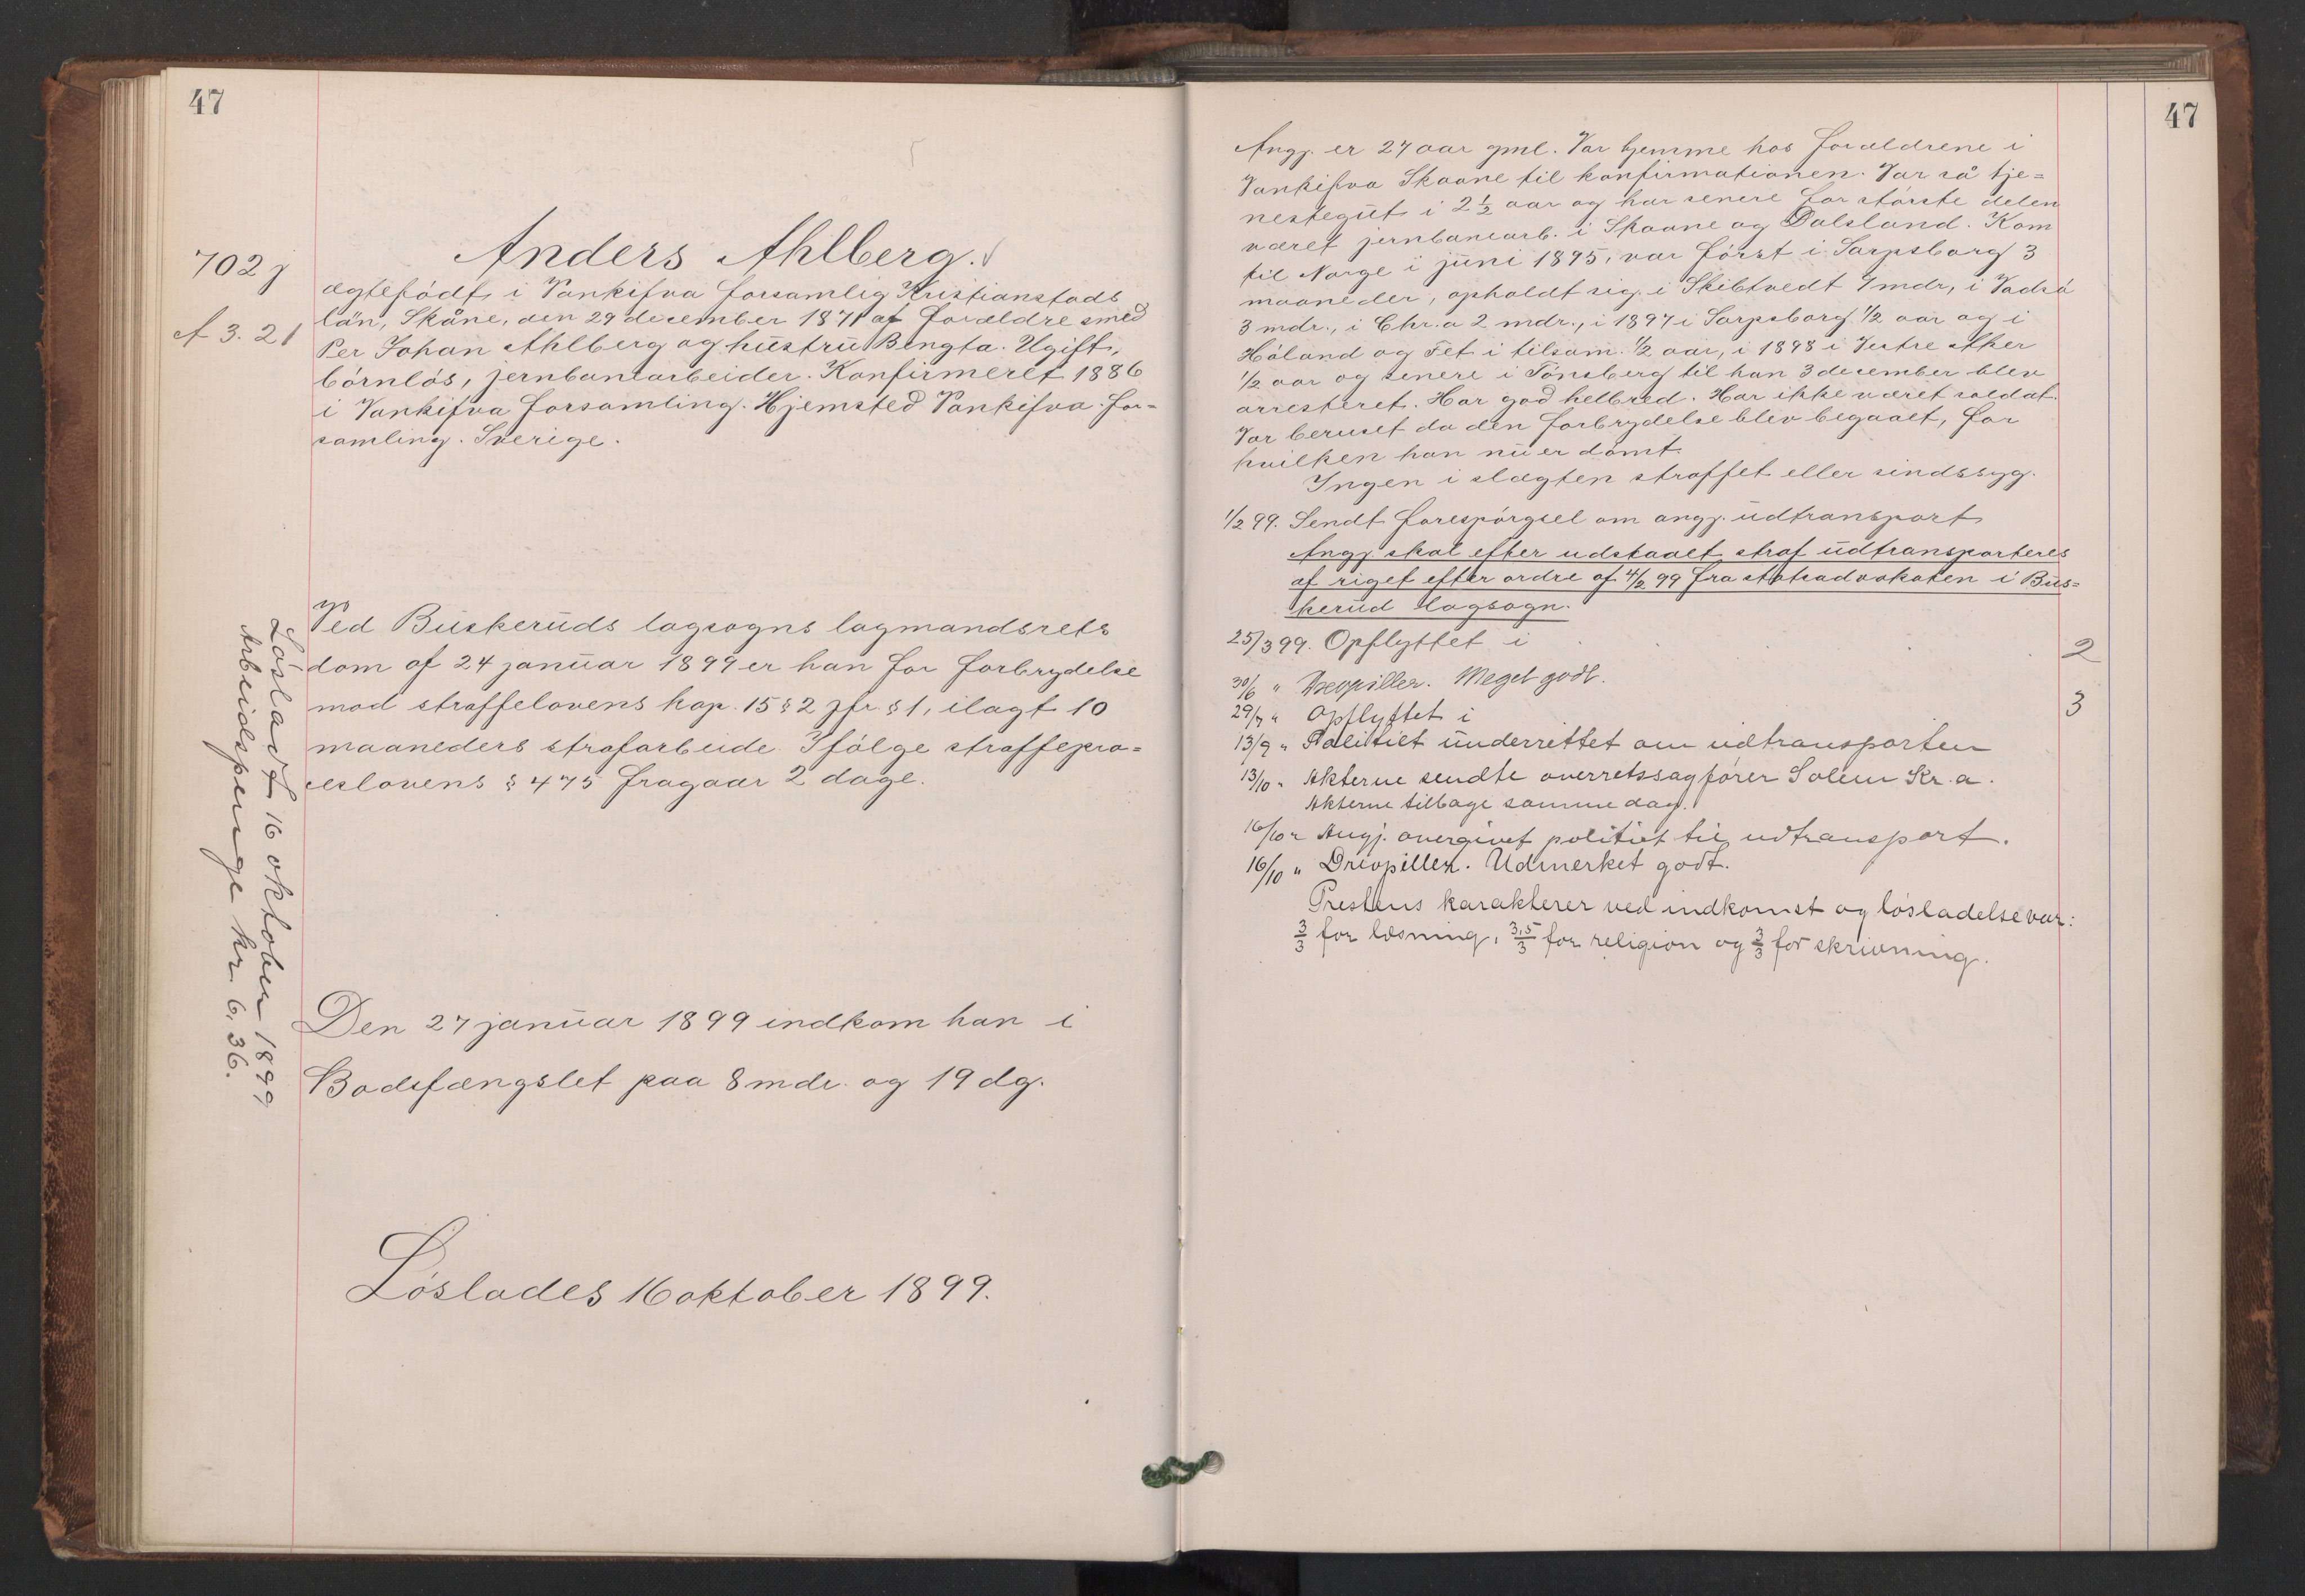 47
702 j
A 3. 21
Anders Ahlberg.
ægtefödt i Vankifva forsamlig Kristianstads
län, Skåne, den 29 december 1871 af forældre smed
Per Johan Ahlberg og hustru Bengta. Ugift,
börnlös, jernbanearbeider. Konfirmeret 1886
i Vankifva forsamling. Hjemsted Vankifva for-
samling. Sverige.
Ved Buskeruds lagsogns lagmandsrets
dom af 24 januar 1899 er han for forbrydelse
mod straffelovens kap. 15 § 2 jfr. § 1, ilagt 10
maaneders strafarbeide. Ifölge straffepro-
ceslovens § 475 fragaar 2 dage.
Lösladt 16 oktober 1899
Arbeidspenge kr. 6,36.
Den 27 januar 1899 indkom han i
Bodsfængslet paa 8 mdr. og 19 dg.
Löslades 16 oktober 1899.
47
Angj. er 27 aar gml. Var hjemme hos forældrene i
Vankifva Skaane til konfirmationen. Var så tje=
nestegut i 2 1/2 aar og har senere for störste delen
været jernbanearb. i Skaane og Dalsland. Kom
til Norge i juni 1895, var först i Sarpsborg 3
maaneder, opholdt sig i Skibtvedt 7 mdr, i Vadsö
3 mdr., i Chr.a 2 mdr., i 1897 i Sarpsborg 1/2 aar og i
Höland og Fet i tilsam. 1/2 aar, i 1898 i Vestre Aker
1/2 aar og senere i Tönsberg til han 3 december blev
arresteret. Har god helbred. Har ikke været soldat.
Var beruset da den forbrydelse blev begaaet, for
hvilken han nu er dömt.
Ingen i slægten straffet eller sindssyg.
1/2 99. Sendt forespörgsel om angj. udtransport
Angj. skal efter udstaaet straf udtransporteres
af riget efter ordre af 4/2 99 fra statsadvokaten i Bus=
kerud lagsogn.
25/3 99. Opflyttet i 2
30/6 " Meget godt.
29/7 " Opflyttet i 3
13/9 " Politiet underrettet om udtransporten
13/10 " Akterne sendte overretssagförer Solem Kr.a.
Akterne tilbage samme dag.
16/10 " Angj. overgivet politiet til udtransport.
16/10 " Drevpiller. Udmerket godt.
Prestens karakterer ved indkomst og lösladelse var:
3/3 for læsning, 3,5/3 for religion og 3/3 for skrivning.